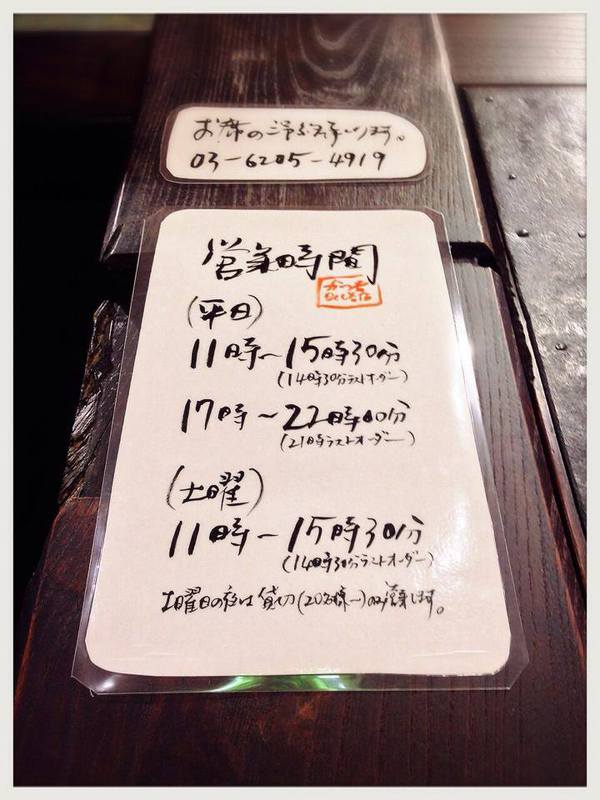 お席のご予約承ります。
03-6205-4919
営業時間
(平日)
11時~15時30分
(14時30分ラストオーダー)
17時~22時00分
(21時ラストオーダー)
(土曜)
11時~15時30分
(14時30分ラストオーダー)
土曜日の夜は貸切(20名様~)のみ営業します。